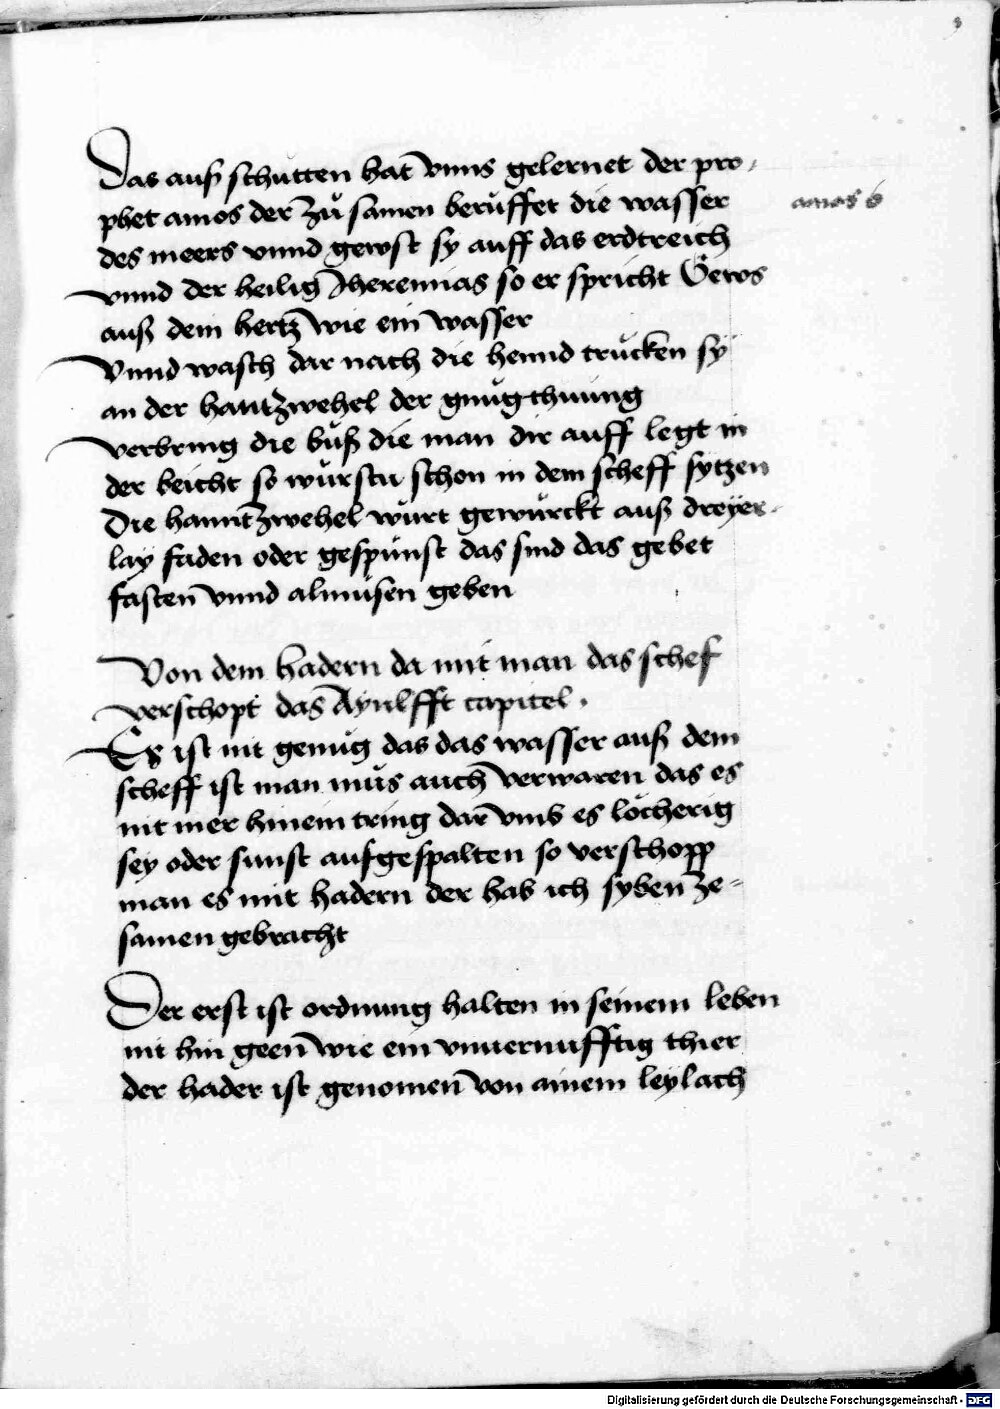 Das auß schutten hat vnns gelernet der pro-
phet amos der zu samen beruͤffet die wasser
amos 6
des meers vnnd gewst sy auff das erdtreich
vnnd der heilig Jheremias so er spricht Gews
auß dem hertz wie ein wasser
Vnnd wasch dar nach die hennd trucken sy
an der hantzwehel der gnugthuung
verbring die buͦß die man dir auff legt in
der beicht so wurstu schon in dem scheff sytzen
Die hanntzwehel wurt gewurckt auß dreyer-
lay faden oder gespunst das sind das gebet
fasten vnnd almusen geben
Von dem hadern da mit man das schef
verschopt das Aynlfft capitel.
Es ist nit genug das das wasser auß dem
scheff ist man muͦs auch verwaren das es
nit mer hinein tring dar vmb es locherig
sey oder sunst aufgespalten so verschopp
man es mit hadern der hab ich syben ze-
samen gebracht
Der erst ist ordnung halten in seinem leben
nit hin geen wie ein vnuernufftig thier
der hader ist genomen von ainem leylach
Digitalisierung gefördert durch die Deutsche Forschungsgemeinschaft - DFG